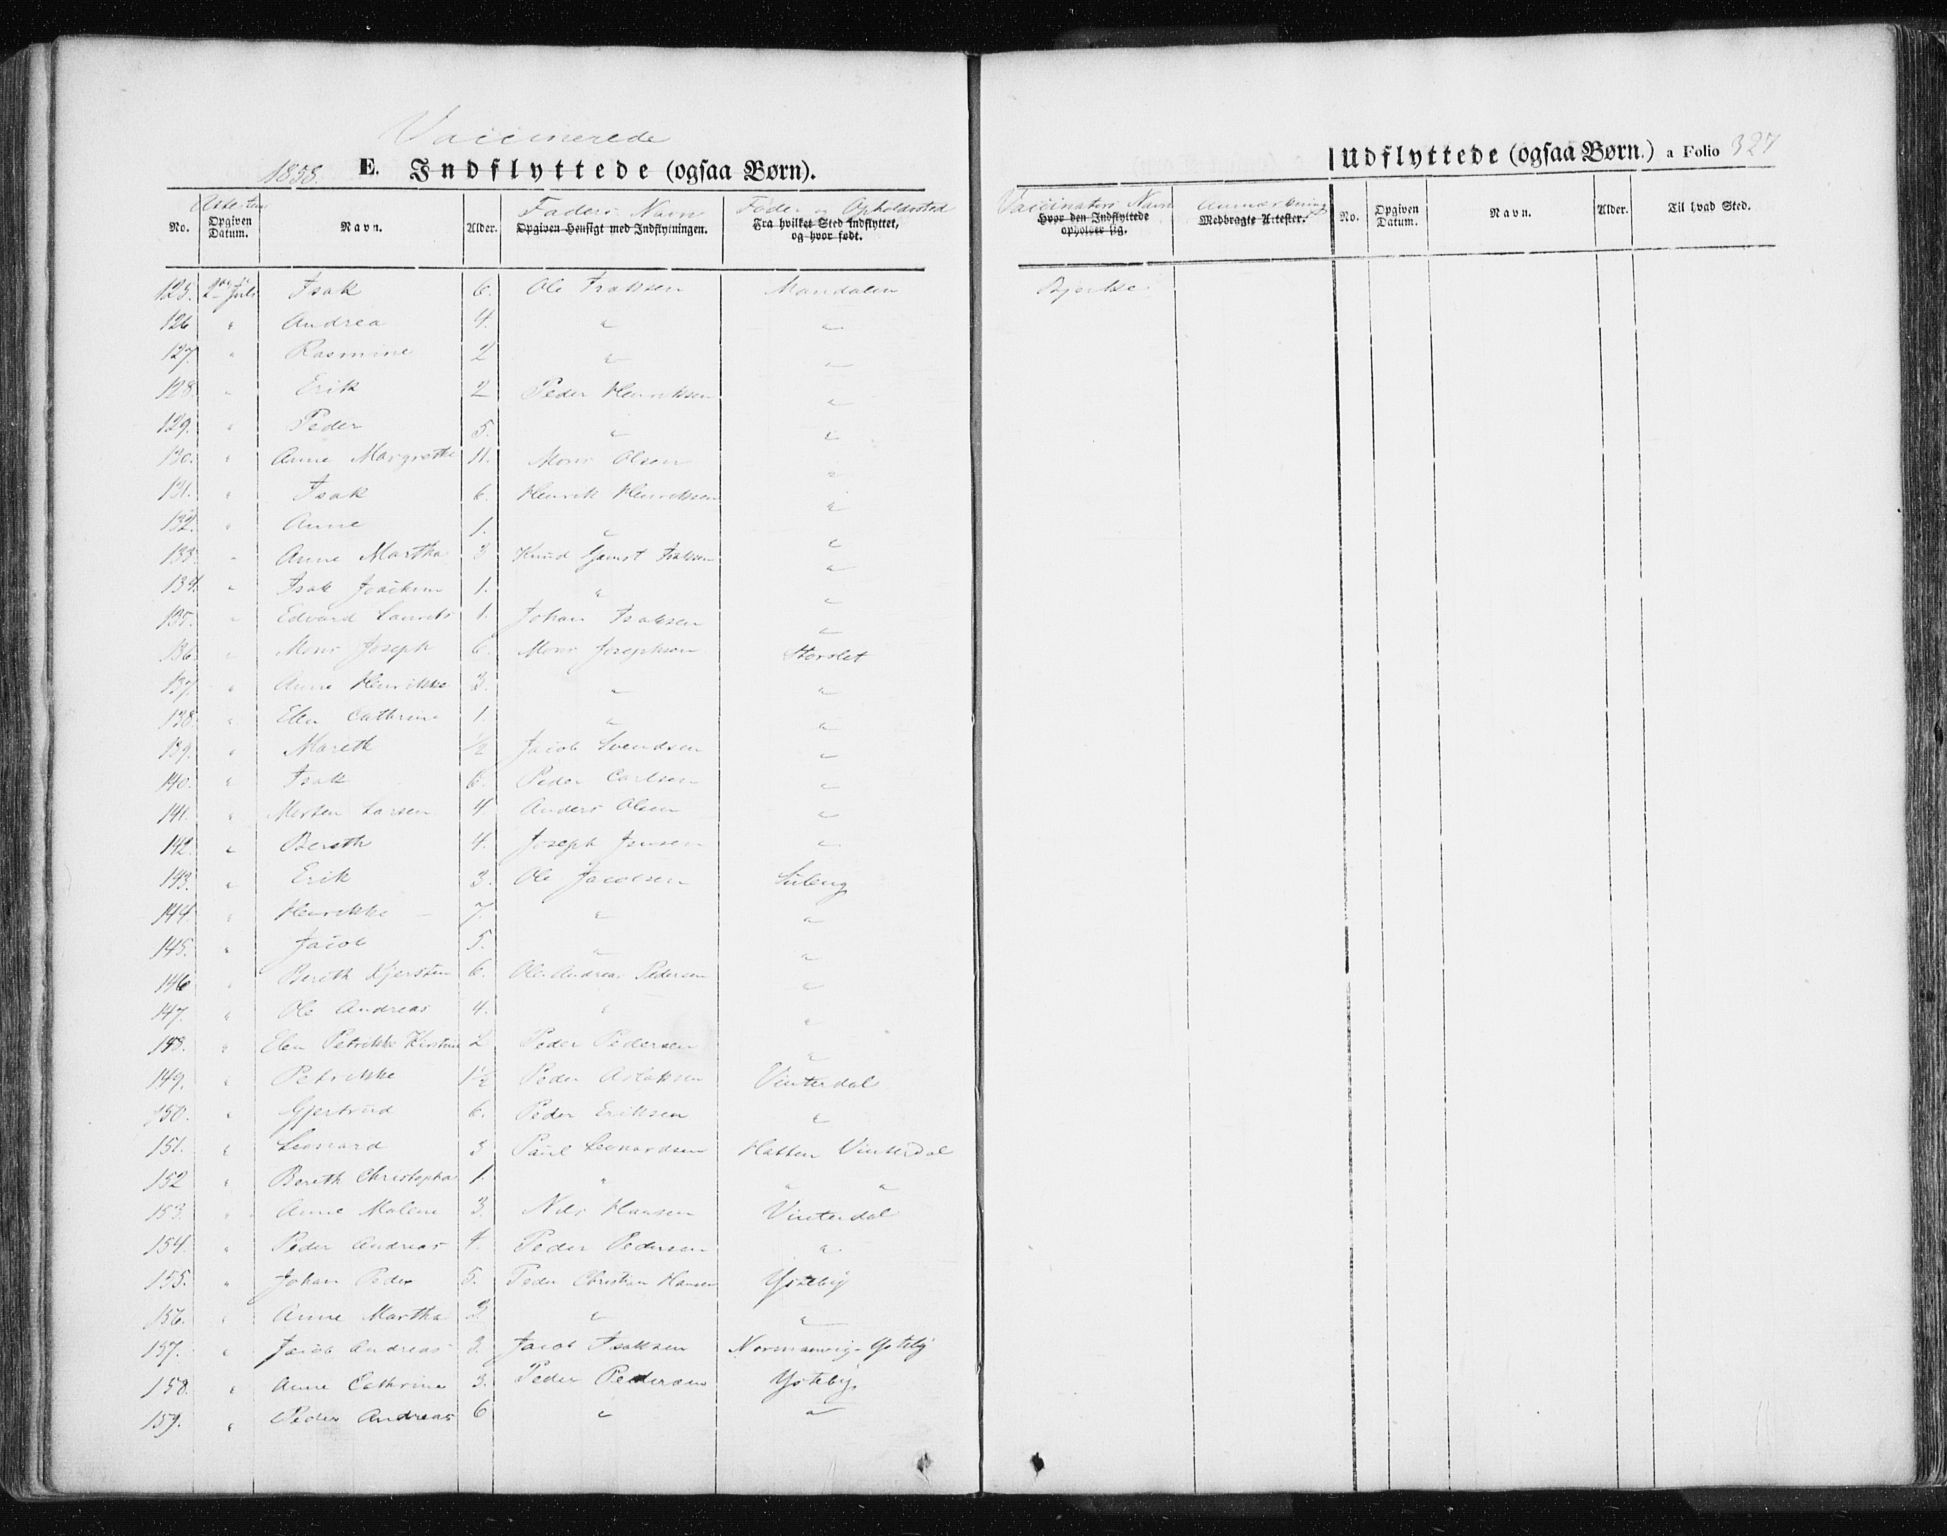 Vaccinerede
1858. E. Indflyttede (ogsaa Børn).
Udflyttede (ogsaa Børn.) a Folio 327
No. Opgiven Datum. Navn. Alder. Faders Navn Opgiven Hensigt med Indflytningen. Føde og Opholdssted Fra hvilket Sted Indflyttet, og hvor født.
Vaccinators Navn Hvor den Indflyttede opholder sig. Anmærkning Medbragte Attester. No. Opgiven Datum. Navn. Alder. Til hvad Sted.
125. Juli Isak 6. Ole Isaksen Mandalen Bjerke
126 " Andrea 4. " "
127. " Rasmine 2 " "
128. " Erik 2 Peder Henriksen "
129. " Peder 5. " "
130. " Anne Margrethe 11. Mons Olsen "
131. " Isak 6. Henrik Henriksen "
132. " Anne 1. " "
133. " Anne Martha 3 Knud Gamst Isaksen "
134. " Isak Joachim 1. " "
135. " Edvard Laurits 1. Johan Isaksen "
136. " Mons Joseph 6. Mons Josephsen Storslet
137. " Anne Henrikke 3. " "
138. " Elen Cathrine 1. " "
139. " Mareth 1/2 Jacob Svendsen "
140. " Isak 6. Peder Carlsen "
141. " Morten Larsen 4 Anders Olsen "
142. " Bereth 4. Joseph Jensen "
143. " Erik 3. Ole Jacobsen
144. " Henrikke 7. " "
145. " Jacob 5. " "
146 " Berith Kjersten 6. Ole Andreas Pedersen "
147. " Ole Andreas 4. " "
148. " Elen Petrikke Kirstine 2 Peder Pedersen "
149. " Petrikke 1 1/2 Peder Aslaksen Vinterdal
150. " Gjertrud 6. Peder Eriksen "
151. " Leonard 3 Paul Leonardsen Hatten Vinterdal
152 " Bereth Christopha 1. " " "
153. " Anne Malene 3. Nils Hansen Vinterdal
154. " Peder Andreas 4. Peder Pedersen "
155. " Johan Peder 5. Peder Christian Hansen Ysteby
156. " Anne Martha 2 " "
157. " Jacob Andreas 3. Jacob Isaksen Normanvig - Ysteby
158. " Anne Cathrine 3. Peder Pedersen Ysteby.
159. " Peder Andreas 6 " "